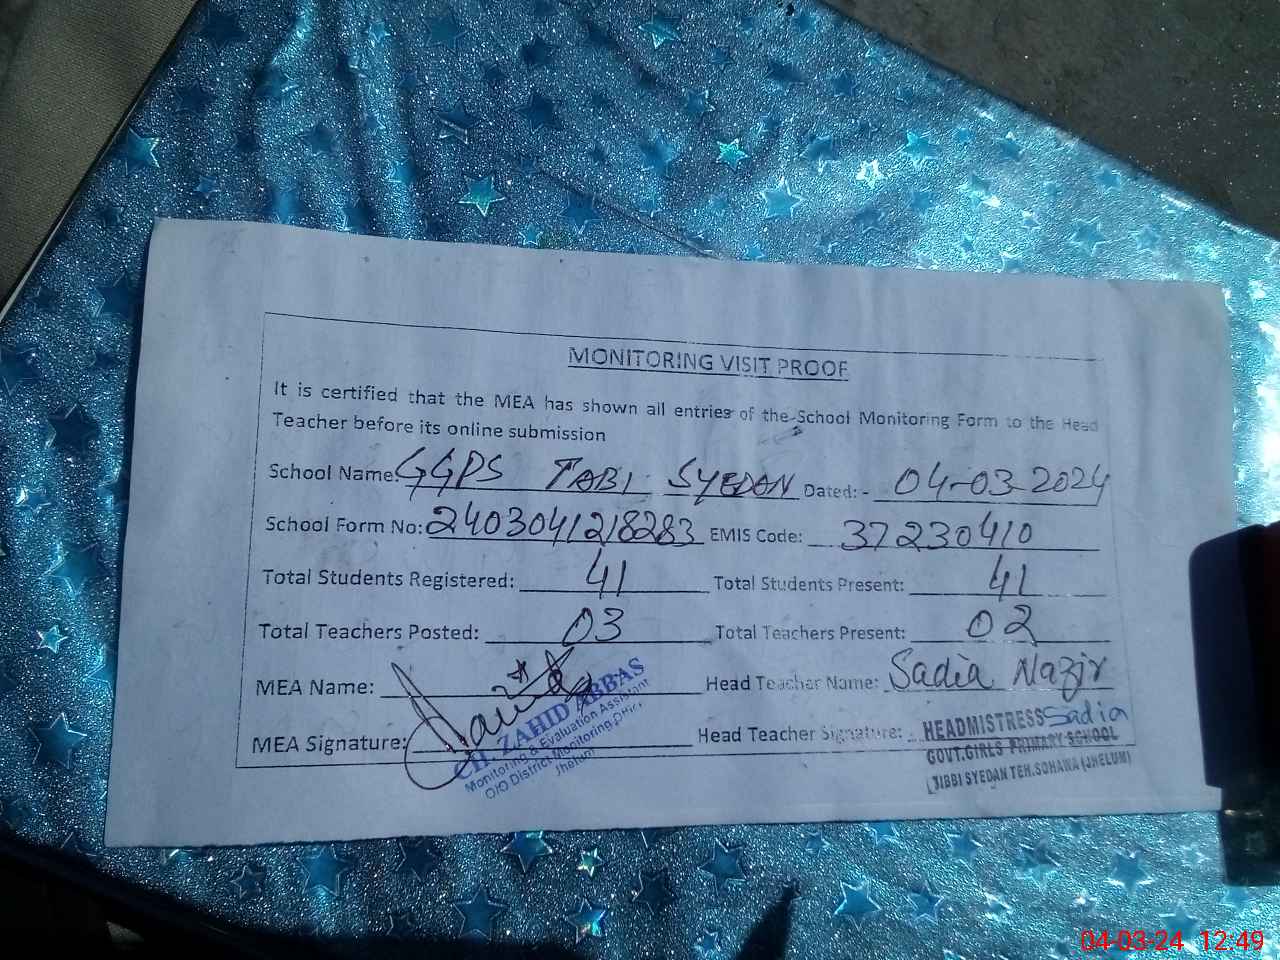 MONITORING VISIT PROOF
It is certified that the MEA has shown all entries of the School Monitoring Form to the Head
Teacher before its online submission
School Name: GGPS TABI SYEDAN Dated: - 04-03-2024
School Form No: 2403041218283 EMIS Code: 37230410
Total Students Registered: 41 Total Students Present: 41
Total Teachers Posted: 03 Total Teachers Present: 02
MEA Name: Head Teacher Name: Sadia Nazir
MEA Signature: Head Teacher Signature: Sadia
CH. ZAHID ABBAS
Monitoring & Evaluation Assistant
O/O District Monitoring
Jhelum
HEADMISTRESS
GOVT.GIRLS PRIMARY SCHOOL
JIBBI SYEDAN TEH.SOHAWA (JHELUM)
04-03-24 12:49